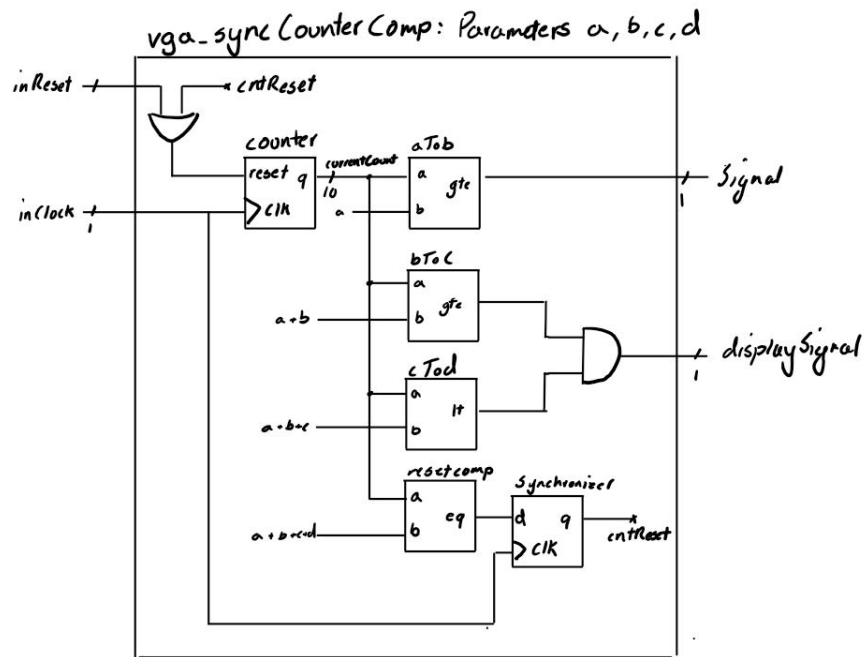 vga_syncCounterComp: Parameters a, b, c, d
inReset
cntReset
counter
reset q
clk
currentCount
10
inClock
1
aTob
a
gte
a
b
1
Signal
bToC
a
gte
a+b
b
displaySignal
1
cTod
a
lt
a+b+c
b
resetcomp
a
eq
a+b+c+d
b
Synchronizer
d q
clk
cntReset